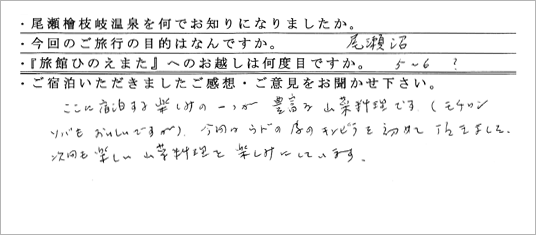 ・尾瀬檜枝岐温泉を何でお知りになりましたか。
・今回のご旅行の目的はなんですか。 尾瀬沼
・『旅館ひのえまた』へのお越しは何度目ですか。 5~6 ?
・ご宿泊いただきましたご感想・ご意見をお聞かせ下さい。
ここに宿泊する楽しみの一つが 豊富な山菜料理です(モチロン
ソバもおいしいですが)。今回はウドの皮のキンピラを初めて頂きました。
次回も楽しい山菜料理を楽しみにしています。